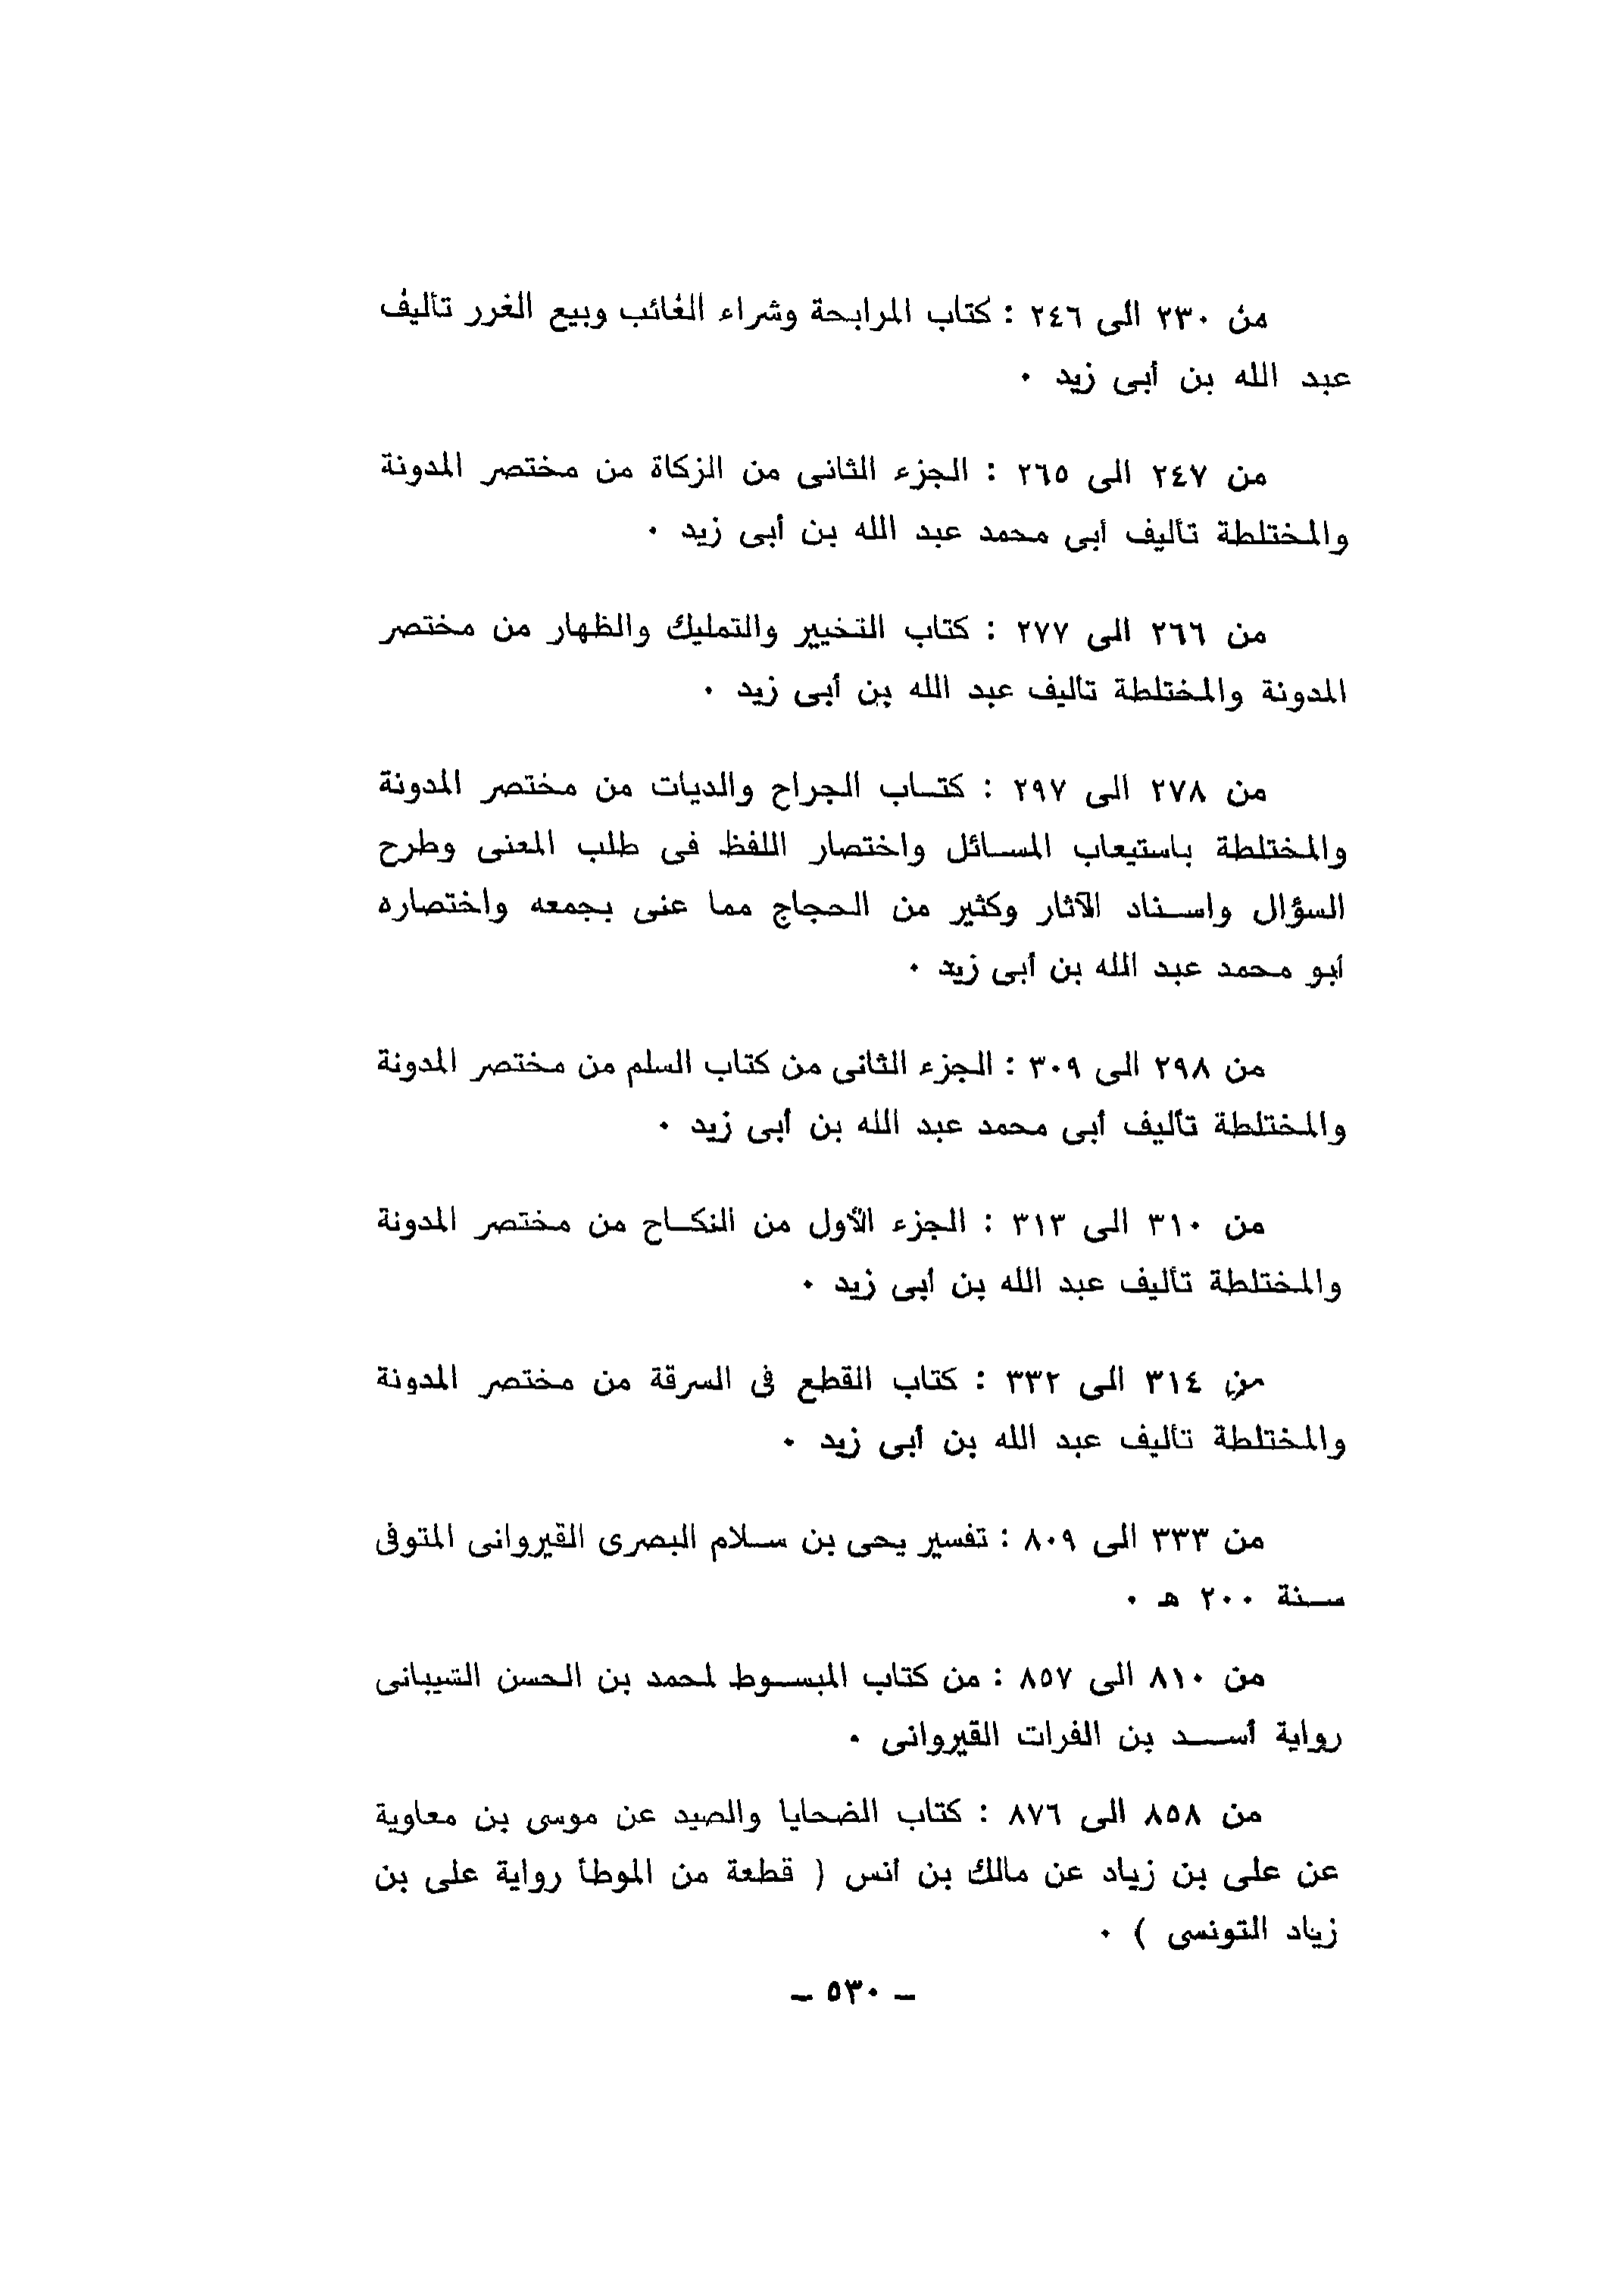 من ٢٣٠ الى ٢٤٦ : كتاب المرابحة وشراء الغائب وبيع الغرر تأليف
عبد الله بن أبى زيد ٠
من ٢٤٧ الى ٢٦٥ : الجزء الثانى من الزكاة من مختصر المدونة
والمختلطة تأليف أبى محمد عبد الله بن أبى زيد ٠
من ٢٦٦ الى ٢٧٧ : كتاب التخيير والتمليك والظهار من مختصر
المدونة والمختلطة تأليف عبد الله بن أبى زيد ٠
من ٢٧٨ الى ٢٩٧ : كتـاب الجراح والديات من مختصر المدونة
والمختلطة باستيعاب المسـائل واختصار اللفظ فى طلب المعنى وطرح
السؤال واسـناد الآثار وكثير من الحجاج مما عنى بجمعه واختصاره
أبو محمد عبد الله بن أبى زيد ٠
من ٢٩٨ الى ٣٠٩ : الجزء الثانى من كتاب السلم من مختصر المدونة
والمختلطة تأليف أبى محمد عبد الله بن أبى زيد ٠
من ٣١٠ الى ٣١٣ : الجزء الأول من النكـاح من مختصر المدونة
والمختلطة تأليف عبد الله بن أبى زيد ٠
من ٣١٤ الى ٣٣٢ : كتاب القطع فى السرقة من مختصر المدونة
والمختلطة تأليف عبد الله بن أبى زيد ٠
من ٣٣٣ الى ٨٠٩ : تفسير يحى بن سـلام البصرى القيروانى المتوفى
سـنة ٢٠٠ هـ ٠
من ٨١٠ الى ٨٥٧ : من كتاب المبسـوط لمحمد بن الحسن الشيبانى
رواية أسـد بن الفرات القيروانى ٠
من ٨٥٨ الى ٨٧٦ : كتاب الضحايا والصيد عن موسى بن معاوية
عن على بن زياد عن مالك بن أنس ( قطعة من الموطأ رواية على بن
زياد التونسى ) ٠
ـ ٥٣٠ ـ